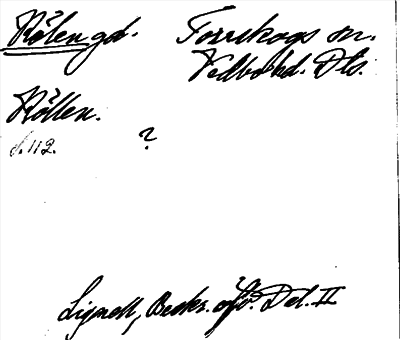 Rölen gd. Torrskogs sn.
Vedbo hd. Dls.
Röllen.
S. 112. ?
Lignell, Beskr. öfv. Dal. II